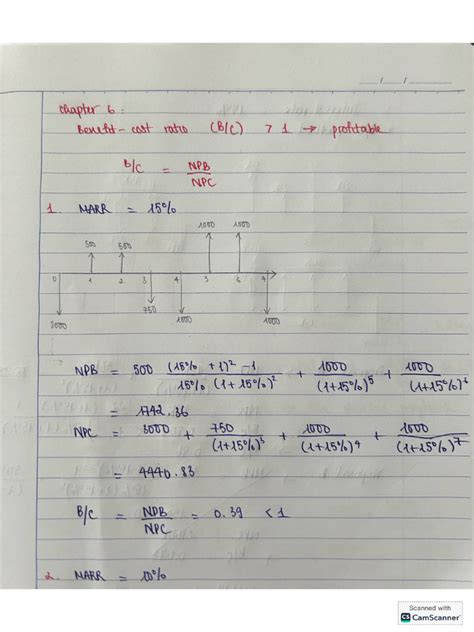 __/__/____
Chapter 6 :
Benefit - cost ratio (B/C) > 1 → profitable
B/C = NPB / NPC
1. MARR = 15%
1000 1000
500 500
0 1 2 3 4 5 6 7
750
3000 1000 1000
NPB = 500 (15% + 1)² - 1 / 15% (1 + 15%)² + 1000 / (1+15%)⁵ + 1000 / (1+15%)⁶
= 1742.36
NPC = 3000 + 750 / (1+15%)³ + 1000 / (1+15%)⁴ + 1000 / (1+15%)⁷
= 4440.83
B/C = NPB / NPC = 0.39 < 1
2. MARR = 10%
Scanned with
CS CamScanner